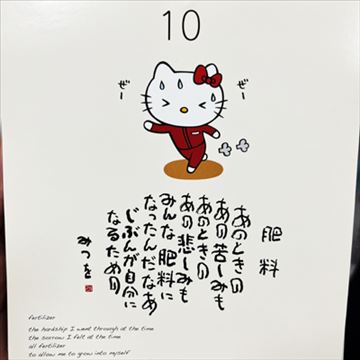 10
ぜー
ぜー
肥料
あのときの
あの苦しみも
あのときの
あの悲しみも
みんな肥料に
なったんだなあ
じぶんが自分に
なるための
みつを
fertilizer
the hardship I went through at the time
the sorrow I felt at the time
all fertilizer
to allow me to grow into myself